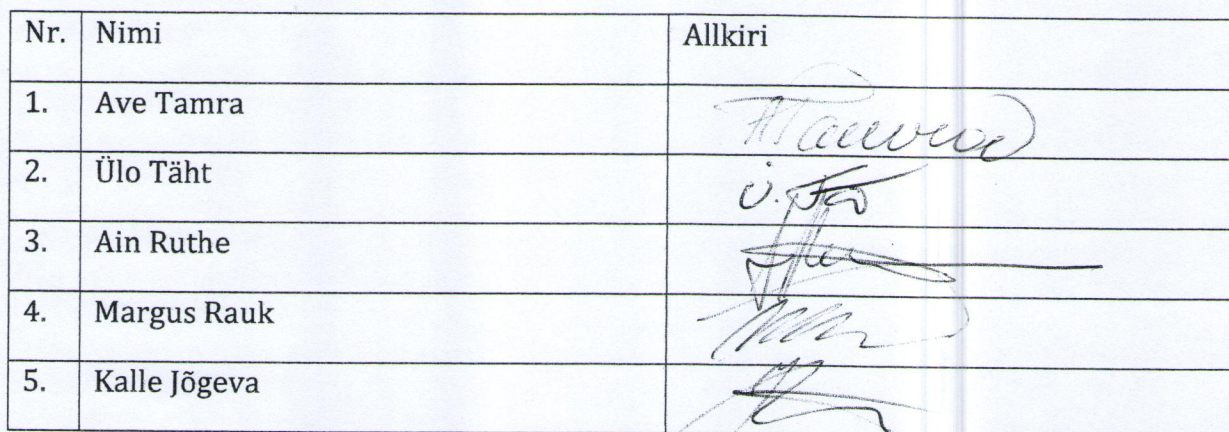 Nr. Nimi Allkiri
1. Ave Tamra
2. Ülo Täht
3. Ain Ruthe
4. Margus Rauk
5. Kalle Jõgeva